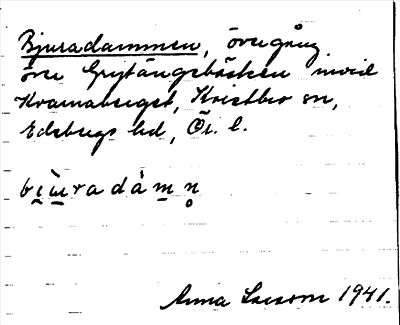 Bjuradammen, övergång
över Grytängsbäcken invid
Kramaberget, Kvistbro sn,
Edsbergs hd, Ör. l.
bi̲ùradàm̲n̥
Anna Larsson 1941.